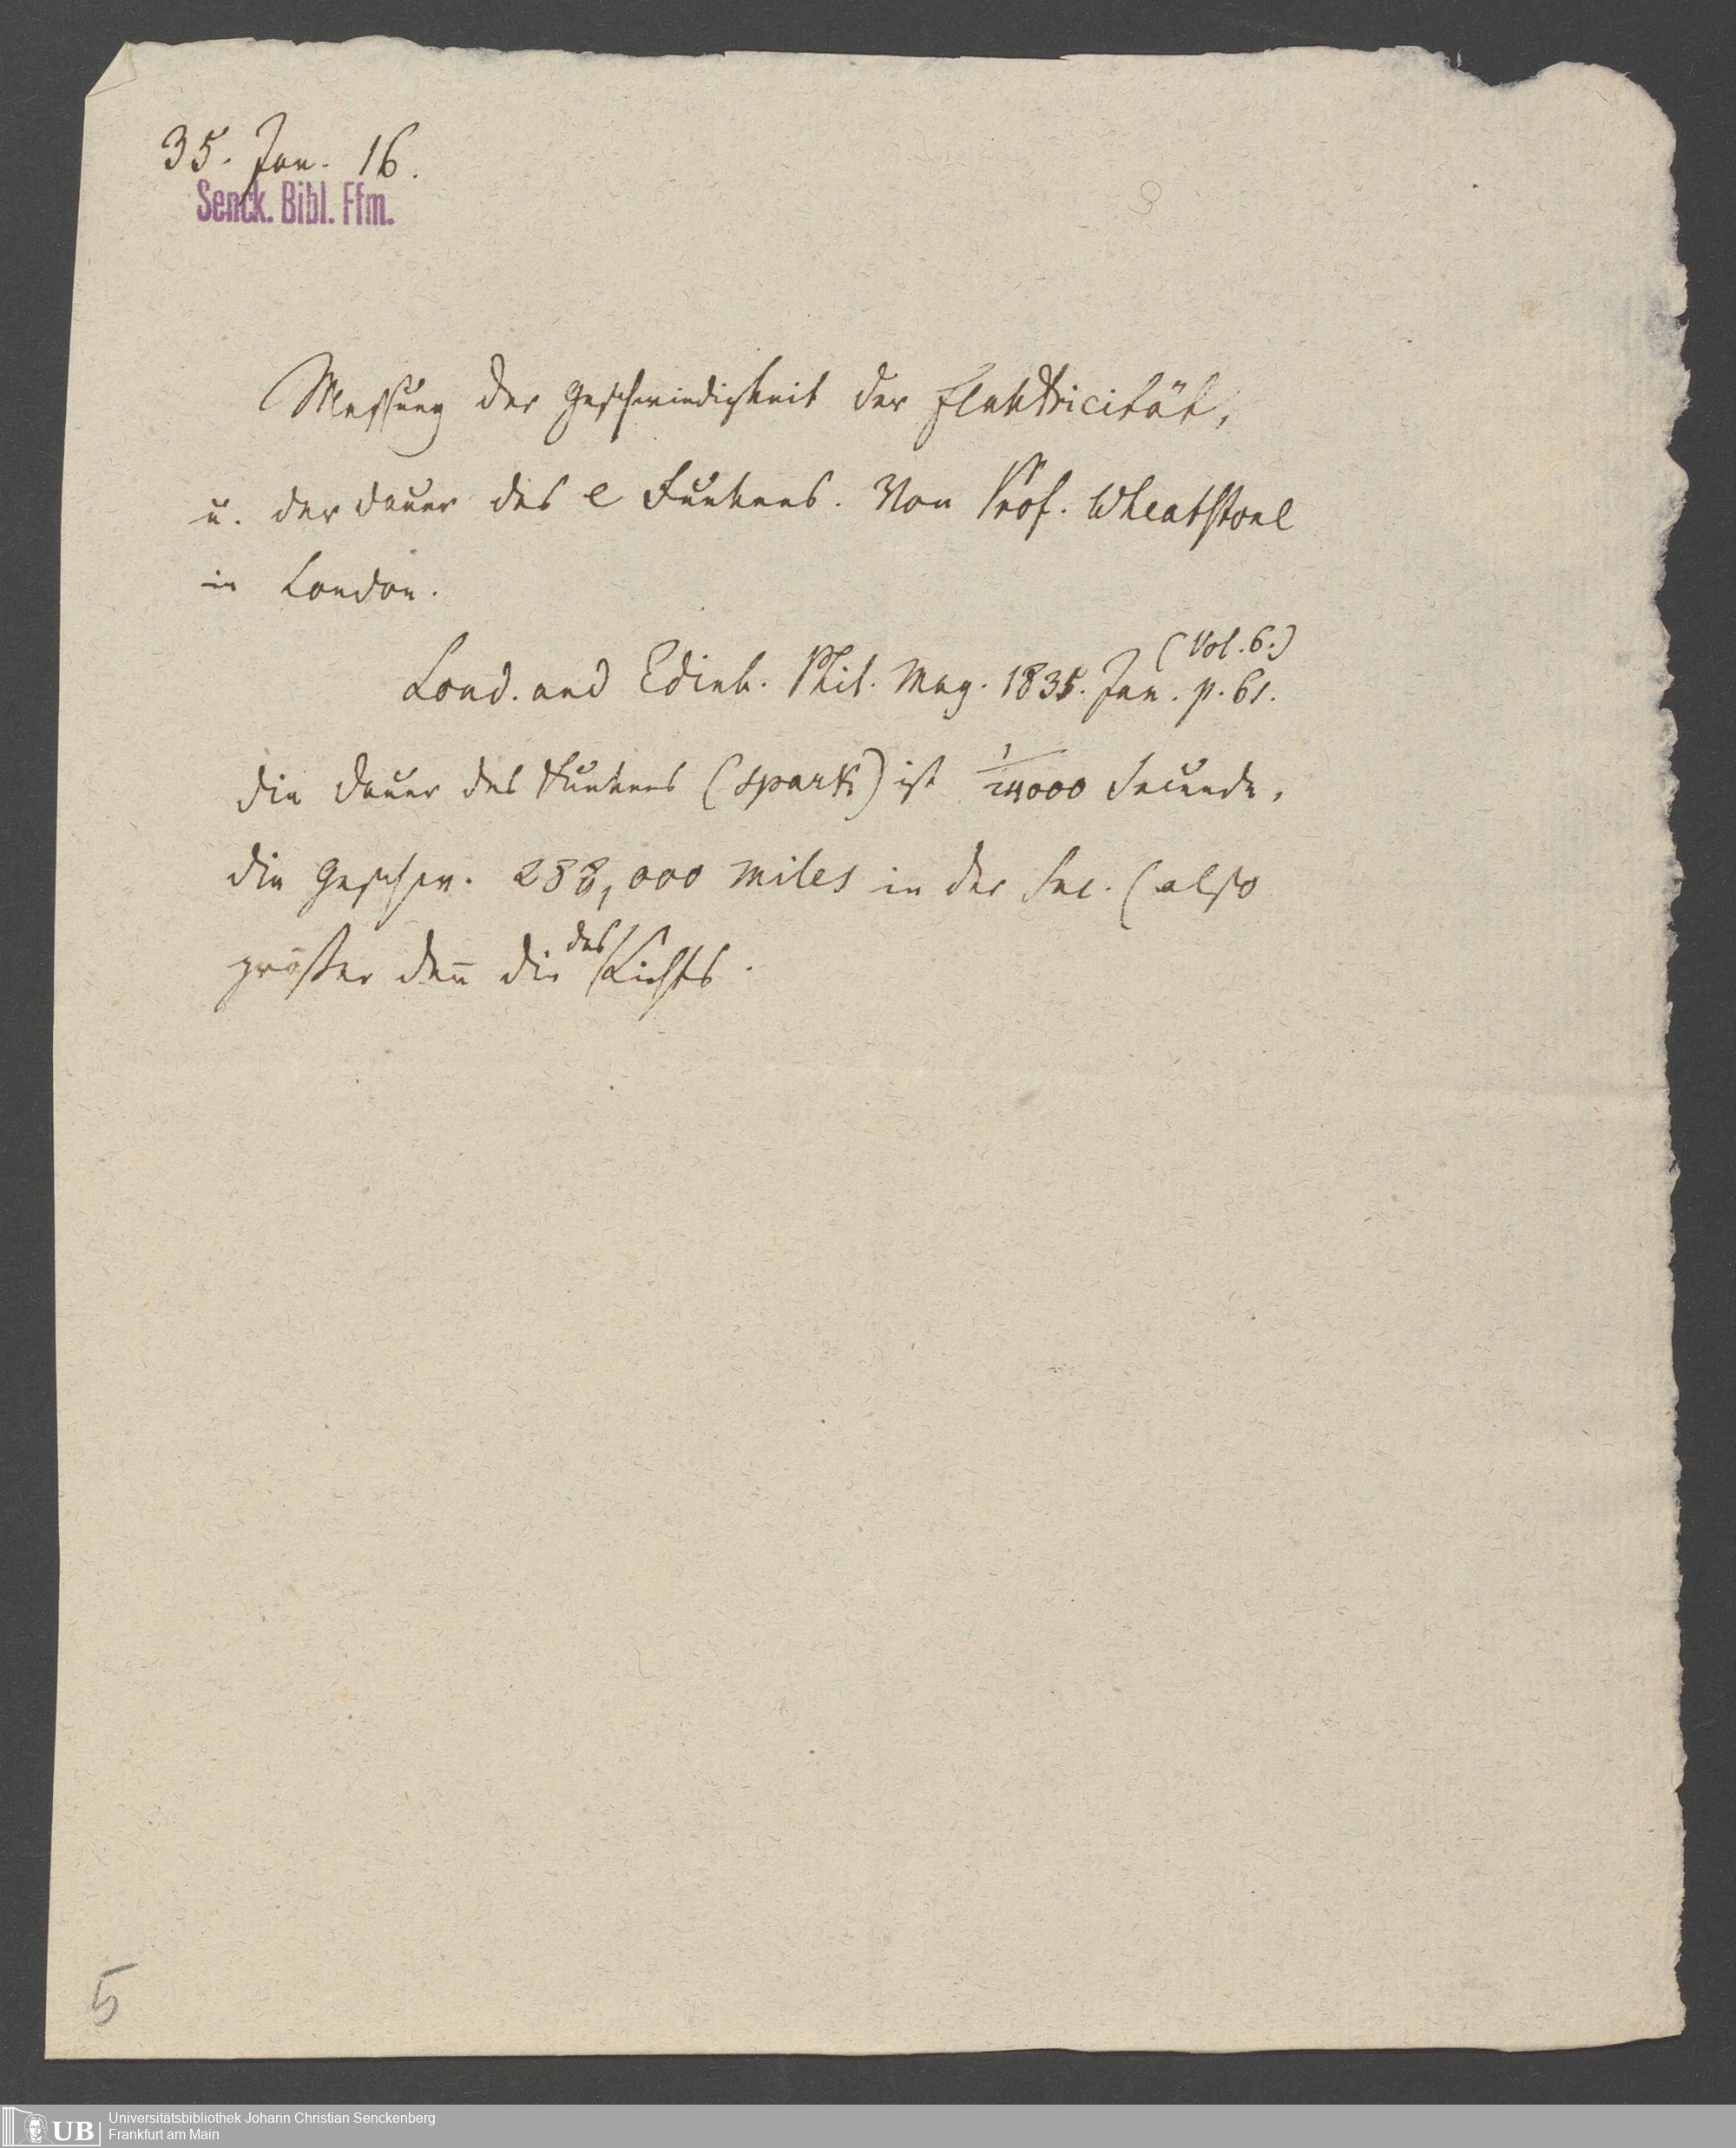 35. Jan. 16.
Senck. Bibl. Ffm.
Messung der Geschwindigkeit der Elektricität,
u. der Dauer des e Funkens. Von Prof. Wheatstone
in London.
(Vol. 6.)
Lond. and Edinb. Phil. Mag. 1835. Jan. p. 61.
die Dauer des Funkens (spark) ist 1/24000 Secunde,
die Geschw. 288,000 miles in der Sec. (also
größer den̅ die des Lichts.
5
UB
Universitätsbibliothek Johann Christian Senckenberg
Frankfurt am Main